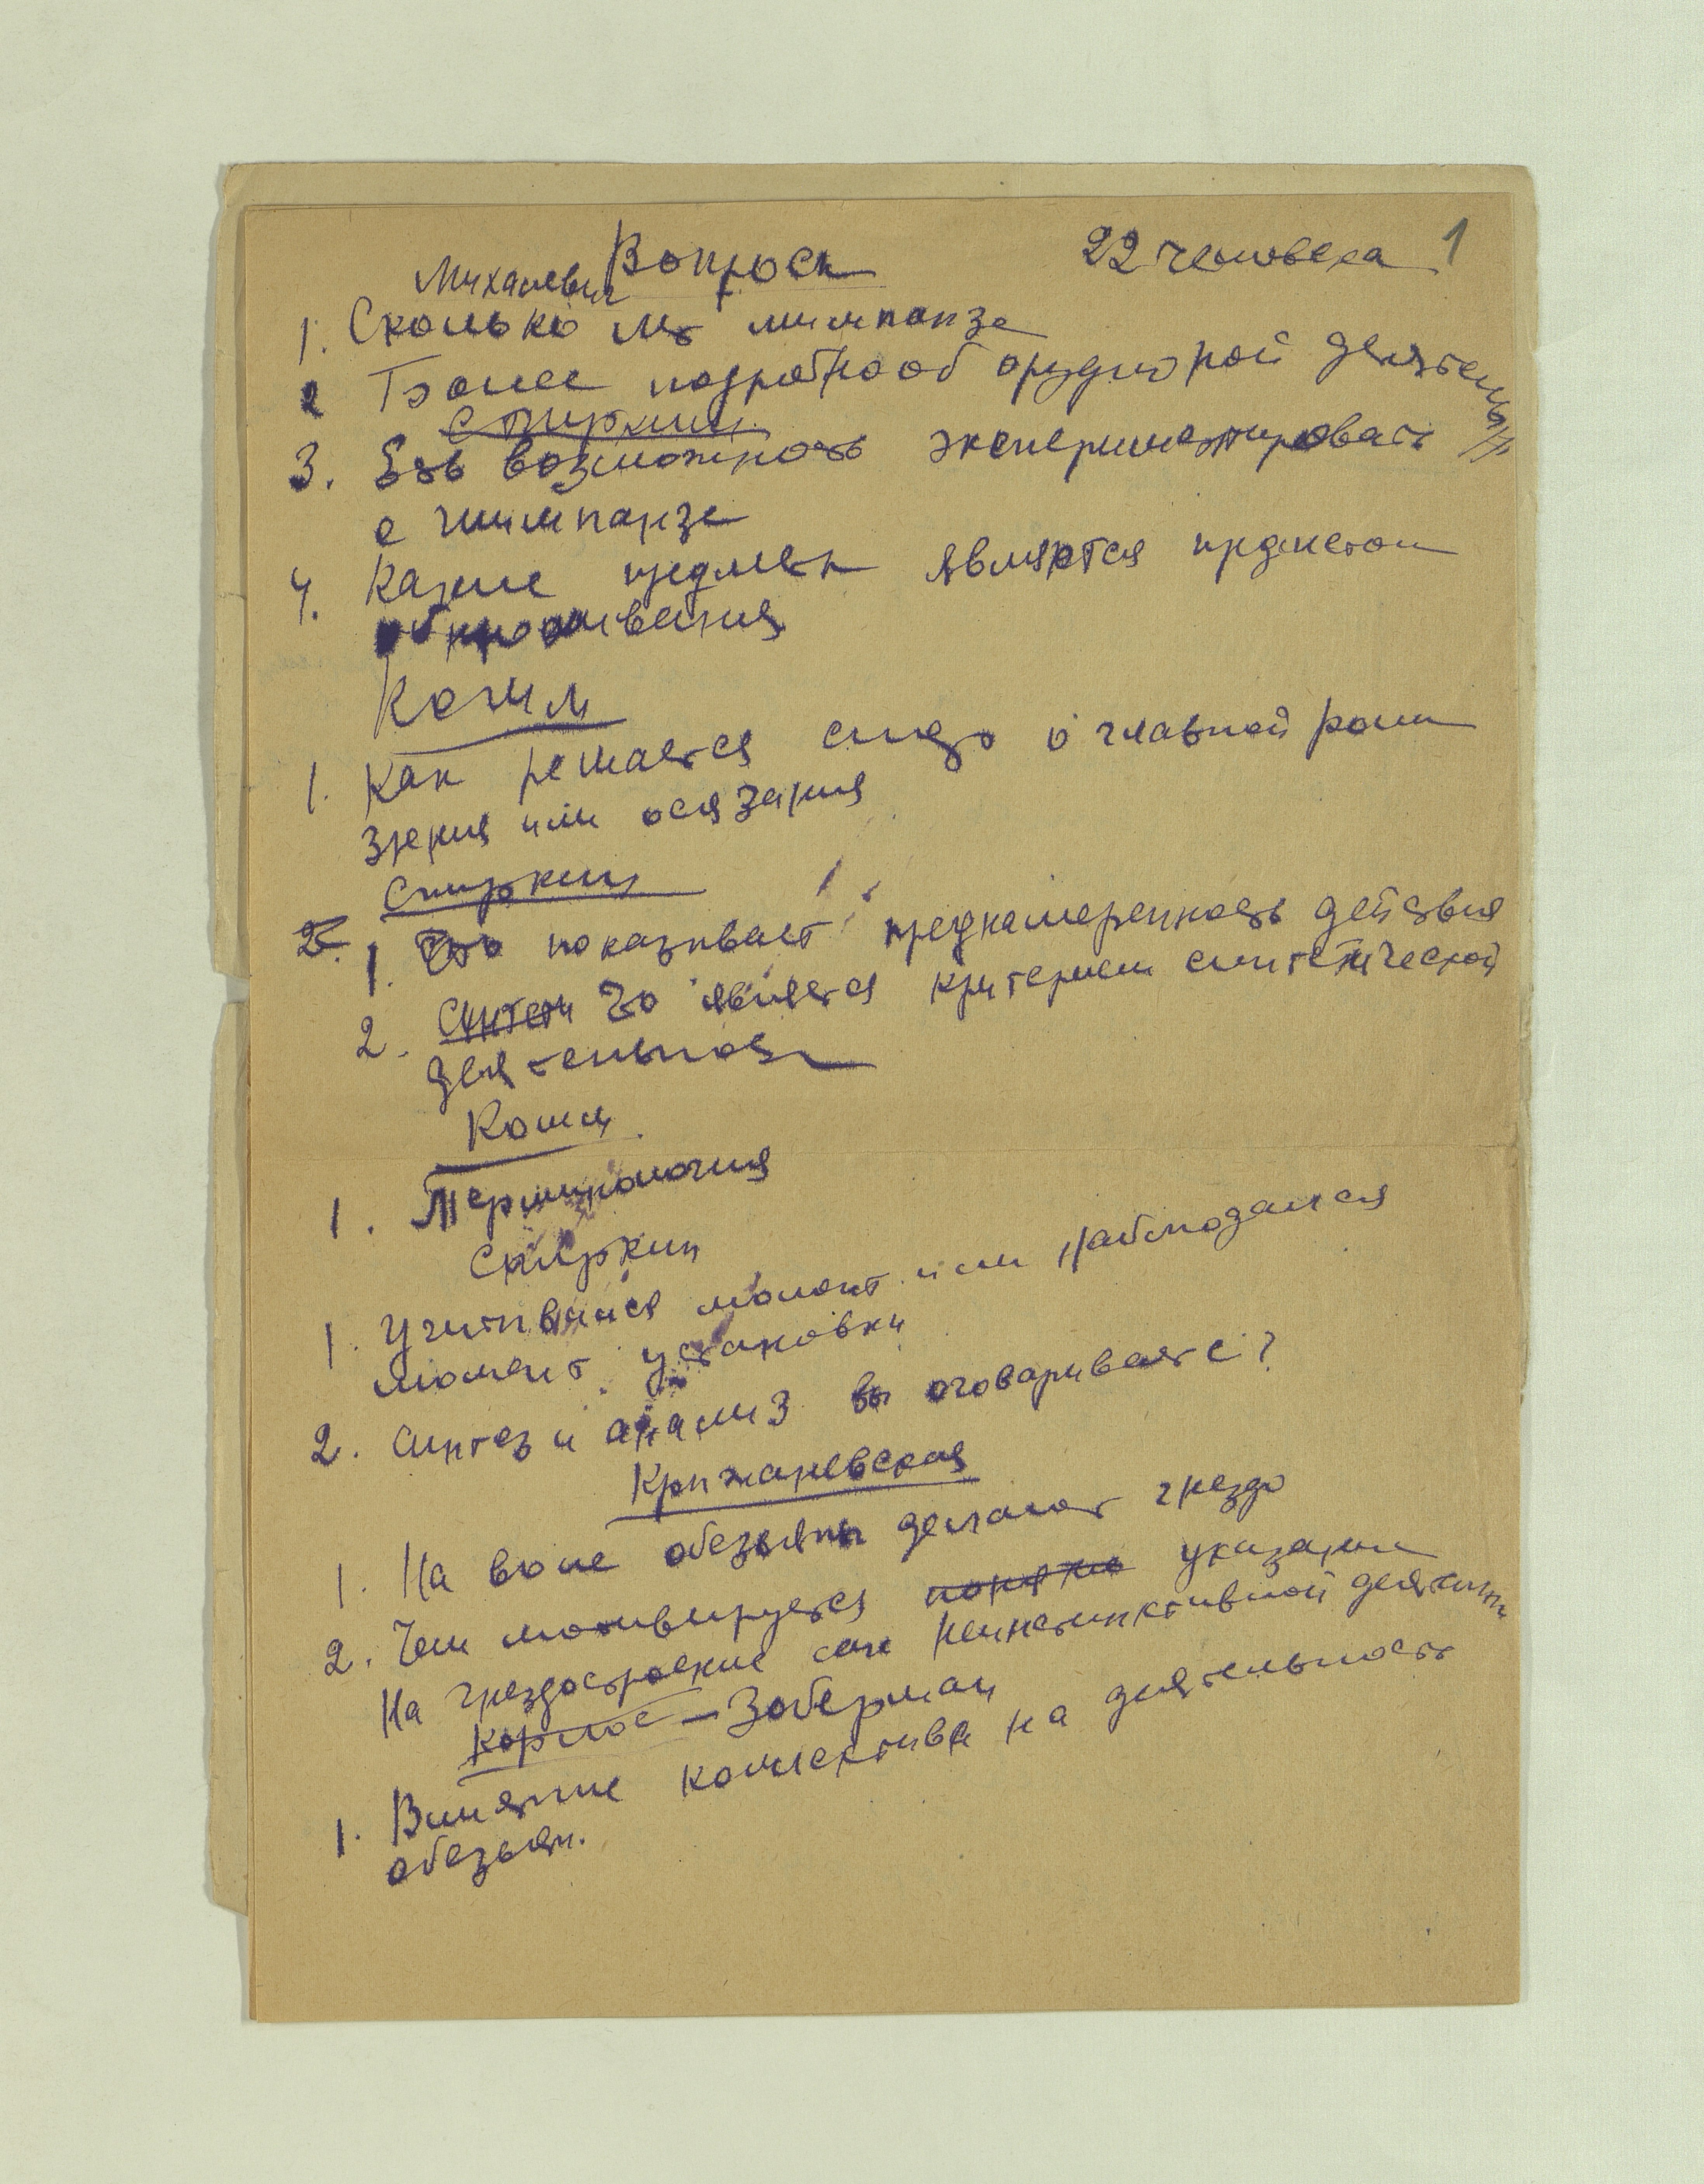 Вопросы 22 человека 1
Михалевич
1. Сколько лет шимпанзе
2 Более подробно об орудийной деятельн
Спиркин
3. Есть возможность экспериментировать
с шимпанзе
4. Какие предметы являются предметом
Котил
1. Как решается спор о главной роли
зрения или осязания
Спиркин
2. 1. Что показывает преднамеренность действия
2. Синтети Что является критерием синтетической
деятельности
1. Терминология
Спиркин
1. Учитывался момент или наблюдался
момент установки
2. Синтез и анализ вы оговариваете?
Крыжановская
1. На воле обезьяны делают гнездо
2. Чем мотивируется понятно указание
На гнездостроение как неинстинктивной деятельн
Зоберман
1. Влияние коллектива на деятельность
обезьян.